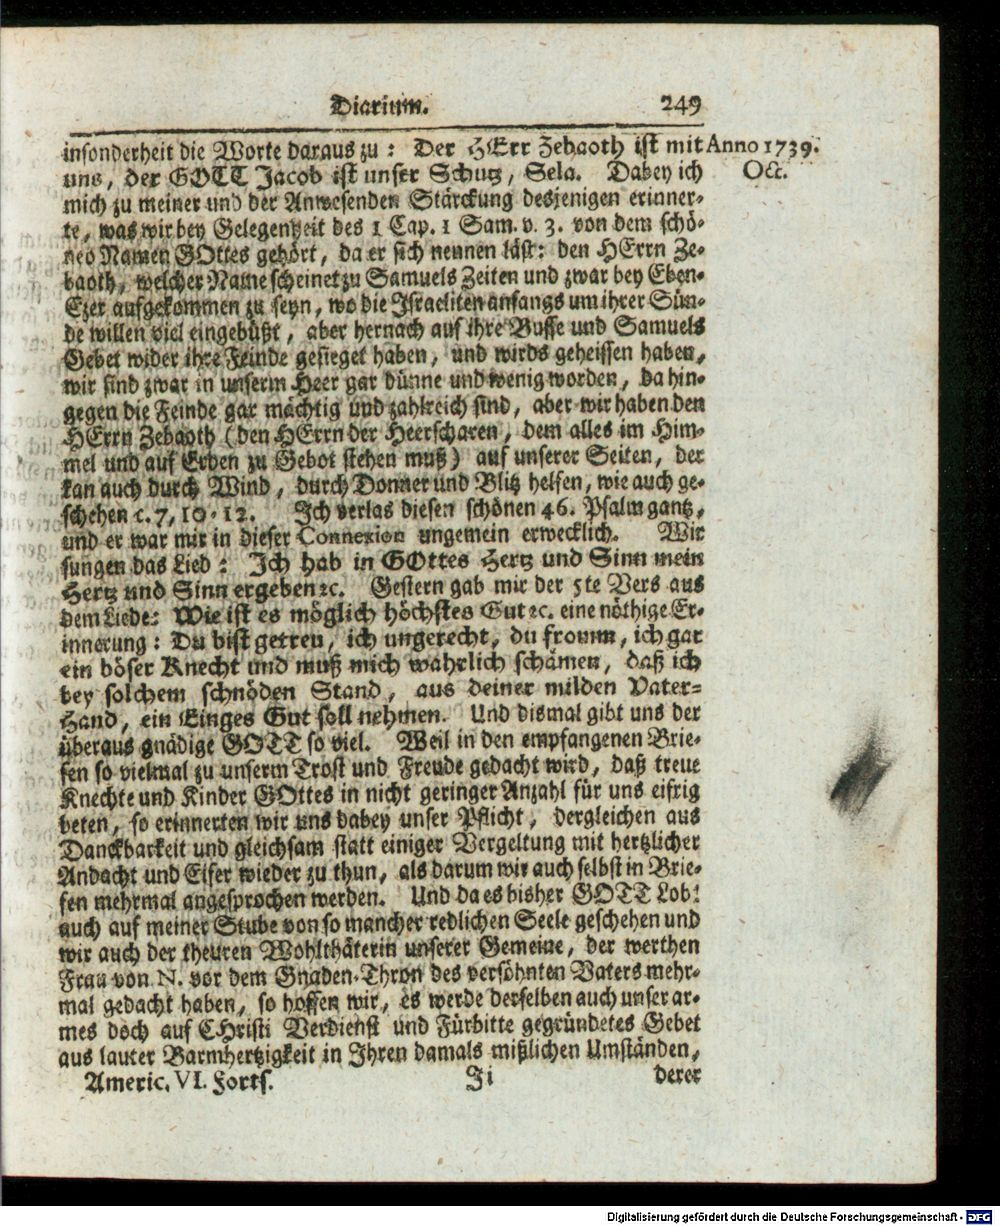 Diarium. 249
insonderheit die Worte daraus zu: Der HErr Zebaoth ist mit Anno 1739.
uns, der GOTT Jacob ist unser Schutz, Sela. Dabey ich Oct.
mich zu meiner und der Anwesenden Stärckung desjenigen erinner-
te, was wir bey Gelegenheit des 1 Cap. 1 Sam. v. 3. von dem schö-
nen Namen GOttes gehört, da er sich nennen läst: den HErrn Ze-
baoth, welcher Name scheinet zu Samuels Zeiten und zwar bey Eben-
Ezer aufgekommen zu seyn, wo die Israeliten anfangs um ihrer Sün-
de willen viel eingebüßt, aber hernach auf ihre Busse und Samuels
Gebet wider ihre Feinde gesieget haben, und wirds geheissen haben,
wir sind zwar in unserm Heer gar dünne und wenig worden, da hin-
gegen die Feinde gar mächtig und zahlreich sind, aber wir haben den
HErrn Zebaoth (den HErrn der Heerscharen, dem alles im Him-
mel und auf Erden zu Gebot stehen muß) auf unserer Seiten, der
kan auch durch Wind, durch Donner und Blitz helfen, wie auch ge-
schehen c. 7, 10-12. Ich verlas diesen schönen 46. Psalm gantz,
und er war mir in dieser Connexion ungemein erwecklich. Wir
sungen das Lied: Ich hab in GOttes Hertz und Sinn mein
Hertz und Sinn ergeben ꝛc. Gestern gab mir der 5te Vers aus
dem Liede: Wie ist es möglich höchstes Gut ꝛc. eine nöthige Er-
innerung: Du bist getreu, ich ungerecht, du fromm, ich gar
ein böser Knecht und muß mich wahrlich schämen, daß ich
bey solchem schnöden Stand, aus deiner milden Vater-
Hand, ein Einges Gut soll nehmen. Und dismal gibt uns der
überaus gnädige GOTT so viel. Weil in den empfangenen Brie-
fen so vielmal zu unserm Trost und Freude gedacht wird, daß treue
Knechte und Kinder GOttes in nicht geringer Anzahl für uns eifrig
beten, so erinnerten wir uns dabey unser Pflicht, dergleichen aus
Danckbarkeit und gleichsam statt einiger Vergeltung mit hertzlicher
Andacht und Eifer wieder zu thun, als darum wir auch selbst in Brie-
fen mehrmal angesprochen werden. Und da es bisher GOTT Lob!
auch auf meiner Stube von so mancher redlichen Seele geschehen und
wir auch der theuren Wohlthäterin unserer Gemeine, der werthen
Frau von N. vor dem Gnaden-Thron des versöhnten Vaters mehr-
mal gedacht haben, so hoffen wir, es werde derselben auch unser ar-
mes doch auf CHristi Verdienst und Fürbitte gegründetes Gebet
aus lauter Barmhertzigkeit in Ihren damals mißlichen Umständen,
Americ. VI. Forts. Ji derer
Digitalisierung gefördert durch die Deutsche Forschungsgemeinschaft - DFG